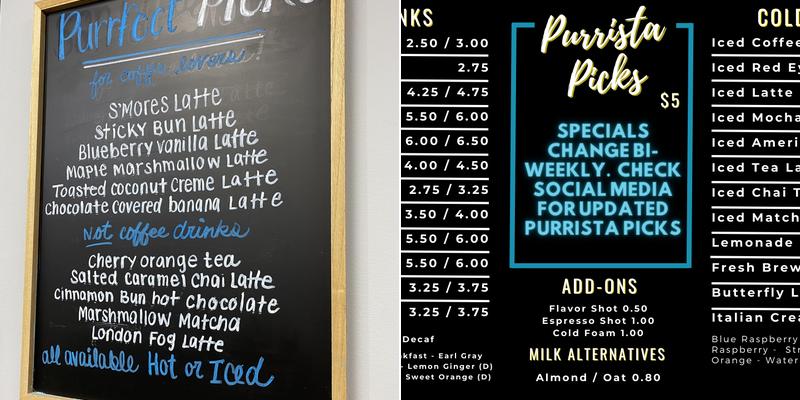 Purrfect Picks
for coffee lovers!
S'mores Latte
Sticky Bun Latte
Blueberry vanilla Latte
Maple Marshmallow Latte
Toasted coconut Creme Latte
Chocolate covered banana Latte
Not coffee drinks
Cherry orange tea
Salted Caramel Chai Latte
Cinnamon Bun hot chocolate
Marshmallow Matcha
London Fog Latte
all available Hot or Iced
NKS
2.50 / 3.00
2.75
4.25 / 4.75
5.50 / 6.00
6.00 / 6.50
4.00 / 4.50
2.75 / 3.25
3.50 / 4.00
5.50 / 6.00
5.50 / 6.00
3.25 / 3.75
3.25 / 3.75
Decaf
kfast - Earl Gray
- Lemon Ginger (D)
Sweet Orange (D)
Purrista
Picks
$5
SPECIALS
CHANGE BI-
WEEKLY. CHECK
SOCIAL MEDIA
FOR UPDATED
PURRISTA PICKS
ADD-ONS
Flavor Shot 0.50
Espresso Shot 1.00
Cold Foam 1.00
MILK ALTERNATIVES
Almond / Oat 0.80
COLD
Iced Coffee
Iced Red Ey
Iced Latte
Iced Mocha
Iced Ameri
Iced Tea La
Iced Chai T
Iced Match
Lemonade
Fresh Brew
Butterfly L
Italian Crea
Blue Raspberry
Raspberry - Str
Orange - Water